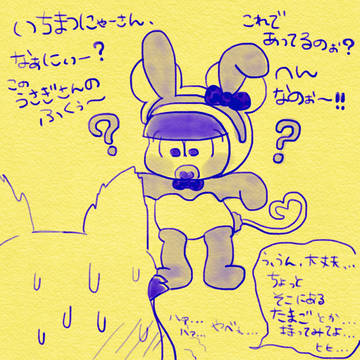 いちまつにゃーさん、
なぁにぃー?
この
うさぎさんの
ふくぅ〜
これで
あってるのぉ?
へん
なのぉ〜!!
?
?
う、うん、大丈夫…
ちょっと
そこにある
たまごとか…
持ってみてよ…
ヒヒ…
ハァ…
ハァ… やべぇ…